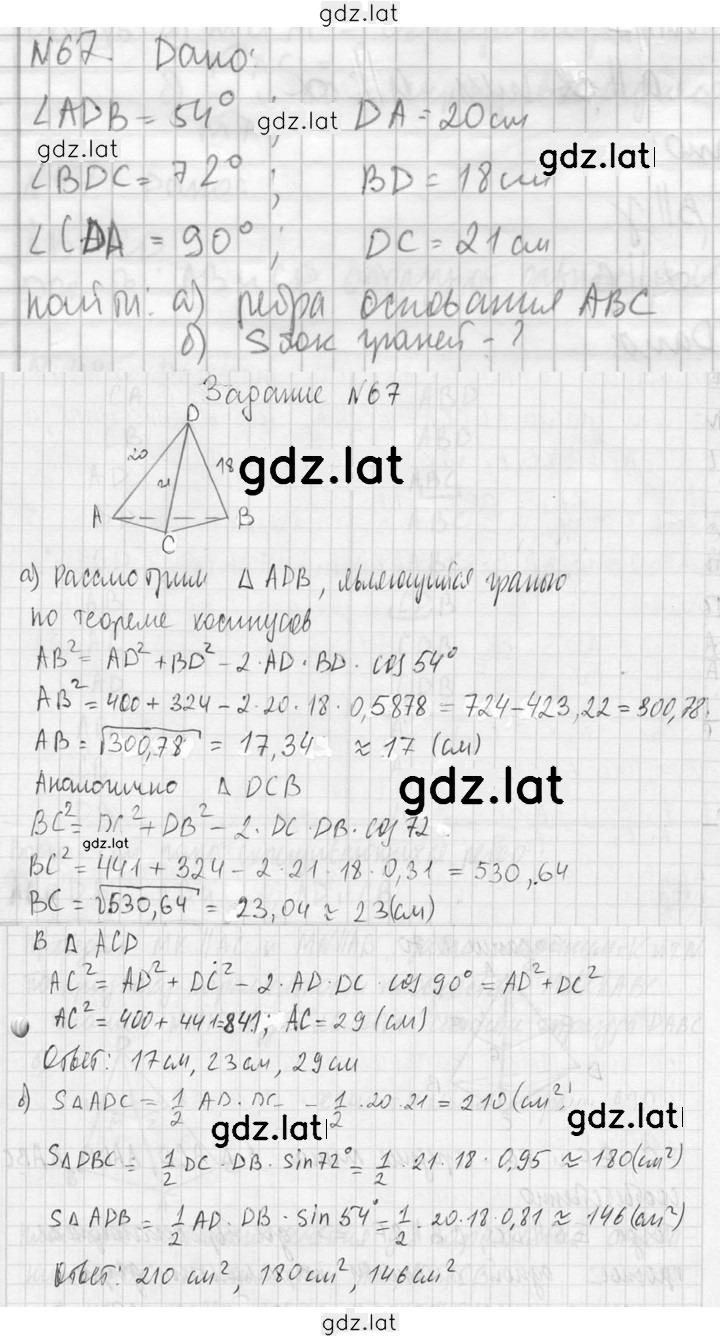 gdz.lat
N67. Дано:
∠ADB = 54°; gdz.lat DA = 20 см
gdz.lat gdz.lat
∠BDC = 72°; BD = 18 см
∠CDA = 90°; DC = 21 см
Найти: а) ребра основания ABC
б) S бок граней - ?
Задание N67
D
20 18 gdz.lat
21
A B
C
а) Рассмотрим Δ ADB, являющийся гранью
по теореме косинусов
AB² = AD² + BD² - 2·AD·BD·cos 54°
AB² = 400 + 324 - 2·20·18·0,5878 = 724 - 423,22 = 300,78;
AB = √300,78 = 17,34 ≈ 17 (см)
Аналогично Δ DCB gdz.lat
BC² = DC² + DB² - 2·DC·DB·cos 72.
gdz.lat
BC² = 441 + 324 - 2·21·18·0,31 = 530,64
BC = √530,64 = 23,04 ≈ 23(см)
В Δ ACD
AC² = AD² + DC² - 2·AD·DC·cos 90° = AD² + DC²
AC² = 400 + 441 = 841; AC = 29 (см)
Ответ: 17 см, 23 см, 29 см
б) SΔADC = 1/2 AD·DC = 1/2·20·21 = 210 (см²)
gdz.lat gdz.lat
SΔDBC = 1/2 DC·DB·sin 72° = 1/2·21·18·0,95 ≈ 180(см²)
SΔADB = 1/2 AD·DB·sin 54° = 1/2·20·18·0,81 ≈ 146(см²)
Ответ: 210 см², 180 см², 146 см²
gdz.lat